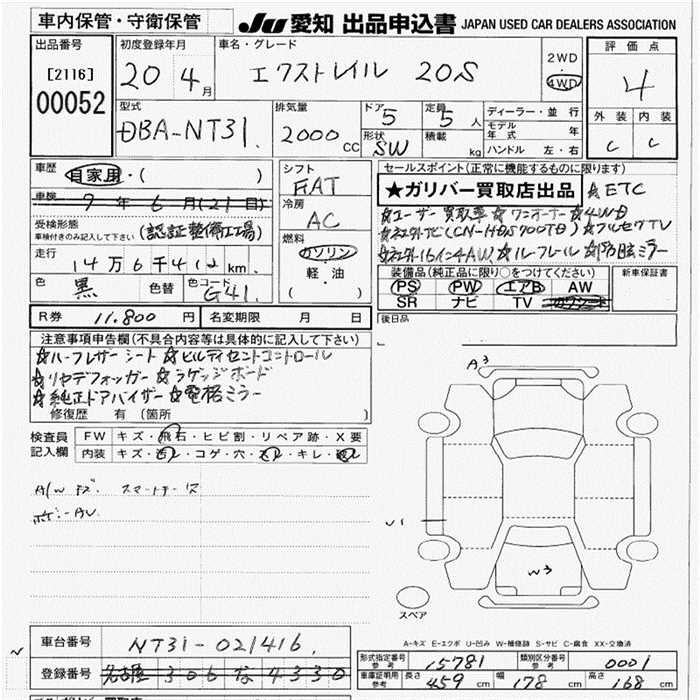 車内保管・守衛保管
JU 愛知 出品申込書 JAPAN USED CAR DEALERS ASSOCIATION
出品番号
[2116]
00052
初度登録年月
20 4月
車名・グレード
エクストレイル 20S
2WD
4WD
評価点
4
外装 内装
C C
型式
DBA-NT31
排気量
2000 CC
ドア 5
形状 SW
定員 5 人
積載 kg
ディーラー・並行
モデル年式 年
ハンドル 左・右
車歴
自家用・( )
車検
9年6月(21日)
受検形態
車検付きのみ記入して下さい
(認証整備工場)
走行
14万6千412km
色 黒 色替 色コード G41
シフト
FAT
冷房
AC
燃料
ガソリン
軽・油
( )
セールスポイント(正常に機能するものに限ります)
★ガリバー買取店出品 ☆ETC
☆ユーザー買取車 ☆ワンオーナー ☆4WD
☆社外ナビ(CN-HDS700TD) ☆フルセグTV
☆社外16インチAW ☆ルーフレール ☆防眩ミラー
装備品(純正品に限り○をつけてください)
PS PW エアB AW
SR ナビ TV
新車保証書
R券 11.800 円 名変期限 月 日
後日品
注意事項申告欄(不具合内容等は具体的に記入して下さい)
☆ハーフレザーシート ☆ヒルディセントコントロール
☆リヤデフォッガー ☆ラゲッジボード
☆純正ドアバイザー ☆電格ミラー
修復歴 有(箇所 )
検査員
記入欄
FW キズ・飛石・ヒビ割・リペア跡・X要
内装 キズ・汚レ・コゲ・穴・スレ・キレ・
A/W キズ. スマートキーズ
A3
U1
W3
スペア
A-キズ E-エクボ U-凹み W-補修跡 S-サビ C-腐食 XX-交換済
車台番号 NT31-021416
登録番号 名古屋 306 な 4330
形式指定番号 参考 15781
類別区分番号 参考 0001
車庫証明用 参考
長さ 459 cm 幅 178 cm 高さ 168 cm